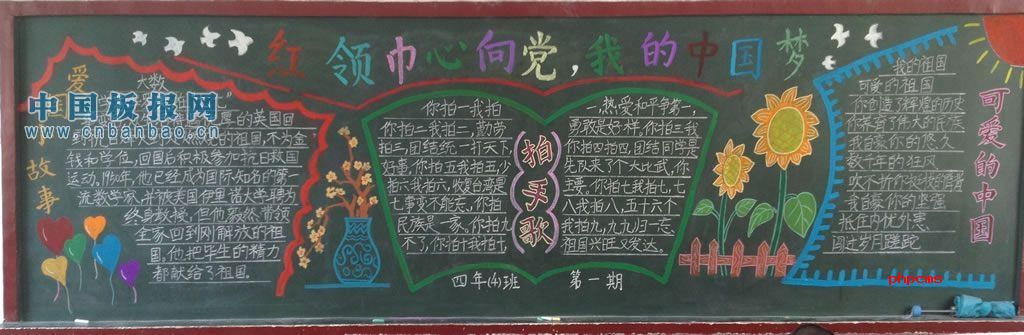 红领巾心向党,我的中国梦
爱
故事
中国板报网
www.cnbanbao.cn
大数
厚的英国回
的祖国,不为金
钱和学位,回国后积极参加抗日救国
运动。1950年,他已经成为国际知名的第一
流数学家,并被美国伊里诺大学聘为
终身教授,但他毅然带领
全家回到刚解放的祖
国,他把毕生的精力
都献给了祖国。
你拍一我拍
你拍二我拍二,勤劳
拍三,团结统一打天下,
你拍五我拍五,少
拍六我拍六,收复台湾是
七事变不能忘,你拍
民族是一家,你拍九
不了,你拍十我拍十,
拍手歌
一,热爱和平争第一,
勇敢是好样,你拍三我
你拍四拍四,团结同学是
先队来了个大比武,你
你拍七我拍七,七
八我拍八,五十六个
我拍九,九九归一忘
祖国兴旺又发达。
四年(4)班 第一期
可爱的中国
我的祖国
可爱的祖国
你创造了辉煌的历史
你养育了伟大的民族
我自豪你的悠久
数千年的狂风
吹不折你挺拔的脊背
我自豪你的坚强
抵住内忧外患
闯过岁月蹉跎
phpcms